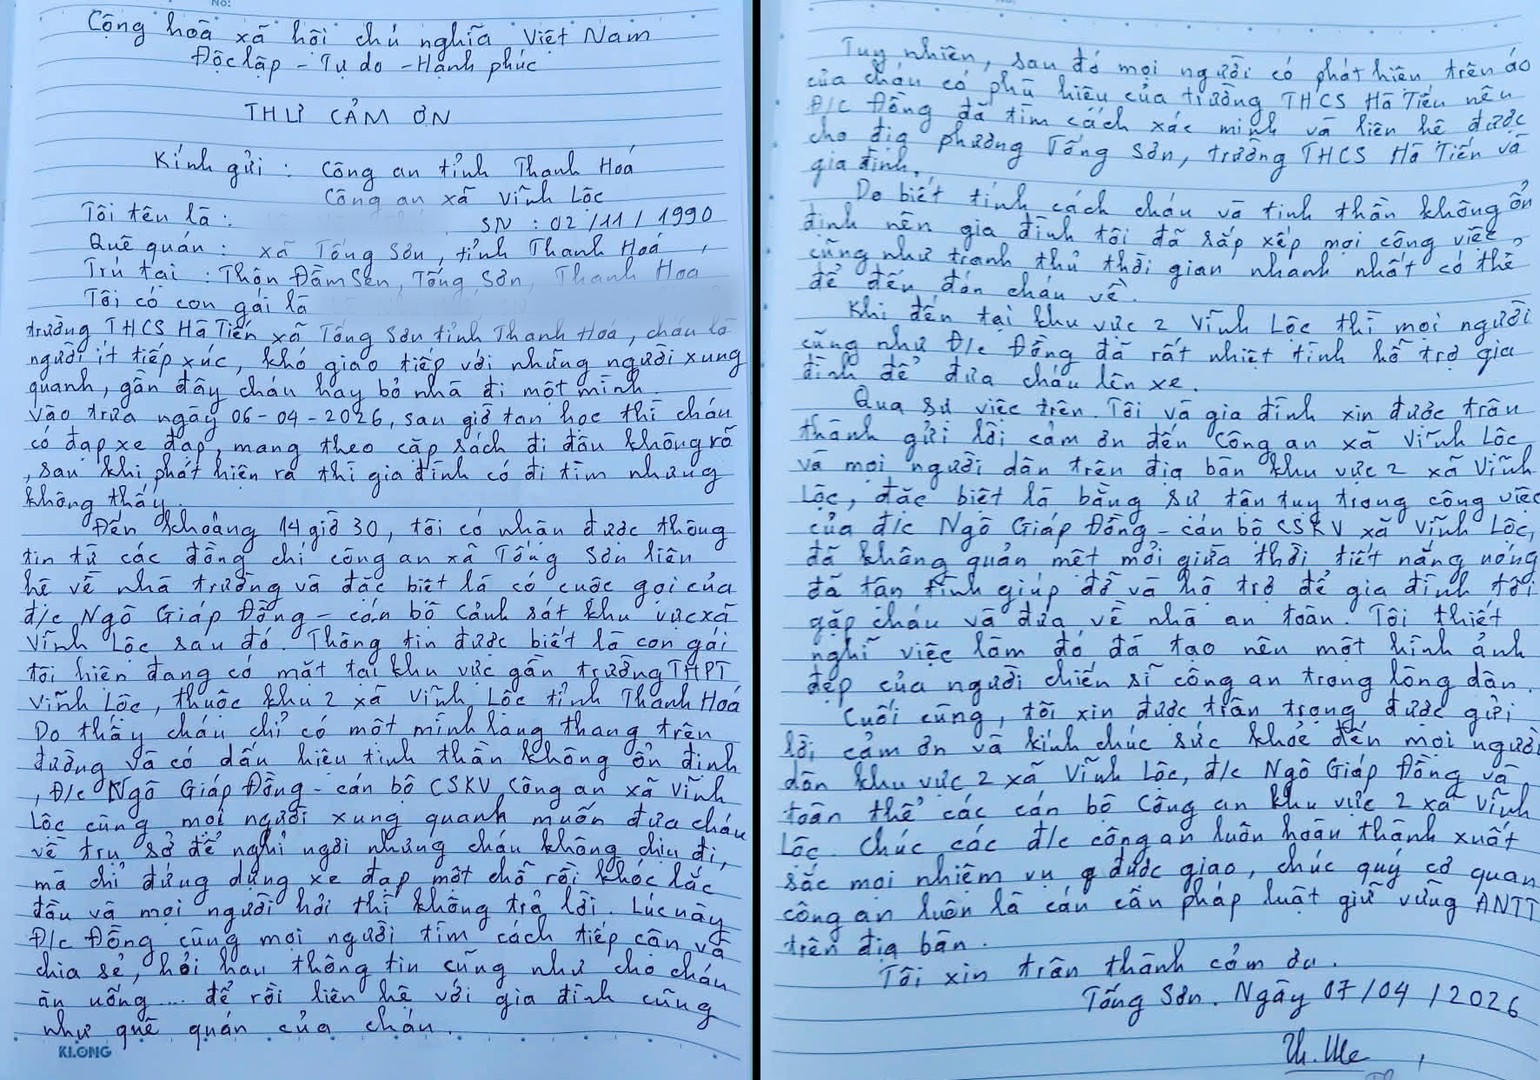 Cộng hoà xã hội chủ nghĩa Việt Nam
Độc lập - Tự do - Hạnh phúc
THƯ CẢM ƠN
Kính gửi : Công an tỉnh Thanh Hoá
Công an xã Vĩnh Lộc
Tôi tên là : SN : 02/11/1990
Quê quán : xã Tống Sơn, tỉnh Thanh Hoá,
Trú tại : Thôn Đầm Sen, Tống Sơn, Thanh Hoá
Tôi có con gái là
trường THCS Hà Tiến xã Tống Sơn tỉnh Thanh Hoá, cháu là
người ít tiếp xúc, khó giao tiếp với những người xung
quanh, gần đây cháu hay bỏ nhà đi một mình.
Vào trưa ngày 06-04-2026, sau giờ tan học thì cháu
có đạp xe đạp, mang theo cặp sách đi đâu không rõ
, sau khi phát hiện ra thì gia đình có đi tìm nhưng
không thấy.
Đến khoảng 14 giờ 30, tôi có nhận được thông
tin từ các đồng chí công an xã Tống Sơn liên
hệ về nhà trường và đặc biệt là có cuộc gọi của
đ/c Ngô Giáp Đồng - cán bộ cảnh sát khu vực xã
Vĩnh Lộc sau đó. Thông tin được biết là con gái
tôi hiện đang có mặt tại khu vực gần trường THPT
Vĩnh Lộc, thuộc khu 2 xã Vĩnh Lộc tỉnh Thanh Hoá
Do thấy cháu chỉ có một mình lang thang trên
đường và có dấu hiệu tinh thần không ổn định
, Đ/c Ngô Giáp Đồng - cán bộ CSKV Công an xã Vĩnh
Lộc cùng mọi người xung quanh muốn đưa cháu
về trụ sở để nghỉ ngơi nhưng cháu không chịu đi,
mà chỉ đứng dựng xe đạp một chỗ rồi khóc lắc
đầu và mọi người hỏi thì không trả lời. Lúc này
Đ/c Đồng cùng mọi người tìm cách tiếp cận và
chia sẻ, hỏi han thông tin cũng như cho cháu
ăn uống ... để rồi liên hệ với gia đình cũng
như quê quán của cháu.
KLONG
Tuy nhiên, sau đó mọi người có phát hiện trên áo
của cháu có phù hiệu của trường THCS Hà Tiến nên
Đ/c Đồng đã tìm cách xác minh và liên hệ được
cho địa phương Tống Sơn, trường THCS Hà Tiến và
gia đình.
Do biết tính cách cháu và tinh thần không ổn
định nên gia đình tôi đã sắp xếp mọi công việc,
cũng như tranh thủ thời gian nhanh nhất có thể
để đến đón cháu về.
Khi đến tại khu vực 2 Vĩnh Lộc thì mọi người
cũng như Đ/c Đồng đã rất nhiệt tình hỗ trợ gia
đình để đưa cháu lên xe.
Qua sự việc trên. Tôi và gia đình xin được trân
thành gửi lời cảm ơn đến Công an xã Vĩnh Lộc
và mọi người dân trên địa bàn khu vực 2 xã Vĩnh
Lộc, đặc biệt là bằng sự tận tuỵ trong công việc
của đ/c Ngô Giáp Đồng - cán bộ CSKV xã Vĩnh Lộc,
đã không quản mệt mỏi giữa thời tiết nắng nóng
đã tận tình giúp đỡ và hỗ trợ để gia đình tôi
gặp cháu và đưa về nhà an toàn. Tôi thiết
nghĩ việc làm đó đã tạo nên một hình ảnh
đẹp của người chiến sĩ công an trong lòng dân.
Cuối cùng, tôi xin được trân trọng được gửi
lời cảm ơn và kính chúc sức khoẻ đến mọi người
dân khu vực 2 xã Vĩnh Lộc, đ/c Ngô Giáp Đồng và
toàn thể các cán bộ Công an khu vực 2 xã Vĩnh
Lộc. Chúc các đ/c công an luôn hoàn thành xuất
sắc mọi nhiệm vụ được giao, chúc quý cơ quan
công an luôn là cán cân pháp luật giữ vững ANTT
trên địa bàn.
Tôi xin trân thành cảm ơn.
Tống Sơn. Ngày 07/04/2026